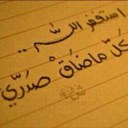 استغفر الله ..
كل ما ضاق صدري